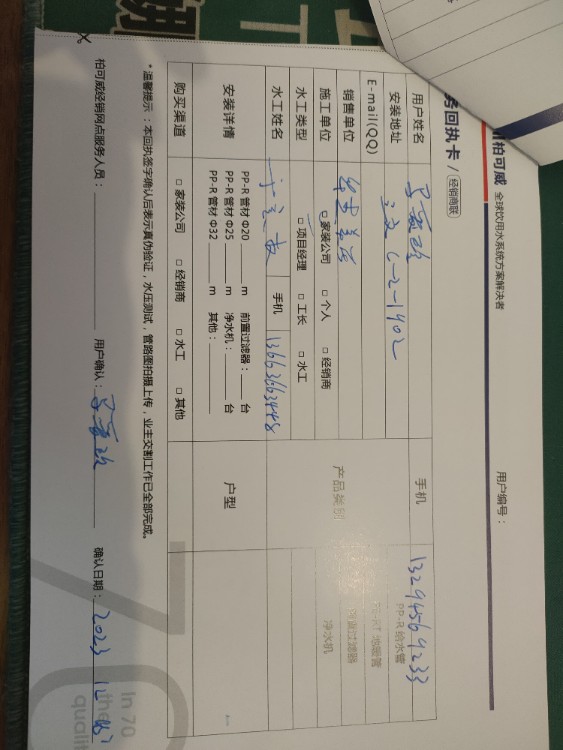 柏可威 全球饮用水系统方案解决者
务回执卡 / 经销商联
用户编号：
用户姓名
手机 13294569233
安装地址 6-2-1402
E-mail(QQ)
销售单位
产品类别
PP-R 给水管
地暖管
前置过滤器
净水机
施工单位 □ 家装公司 □ 个人 □ 经销商
水工类型 □ 项目经理 □ 工长 □ 水工
水工姓名
手机 13663663448
安装详情
PP-R 管材 Φ20 m 前置过滤器： 台
PP-R 管材 Φ25 m 净水机： 台
PP-R 管材 Φ32 m 其他：
户型
购买渠道 □ 家装公司 □ 经销商 □ 水工 □ 其他
* 温馨提示：本回执签字确认后表示真伪验证，水压测试，管路图拍摄上传，业主交割工作已全部完成。
柏可威经销网点服务人员：
用户确认：
确认日期： 2023 12
70
In 70
the
quali